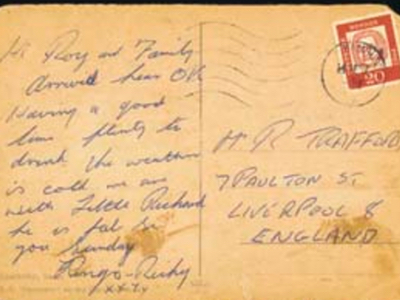 Hi Roy and Family
Arrived hear OK
Having a good
time plenty to
drink the weather
is cold we are
with Little Richard
he is fab see
you Sunday
Ringo-Richy
xxxx
Mr R TRAFFORD
7 PAULTON ST
LIVERPOOL 8
ENGLAND
20